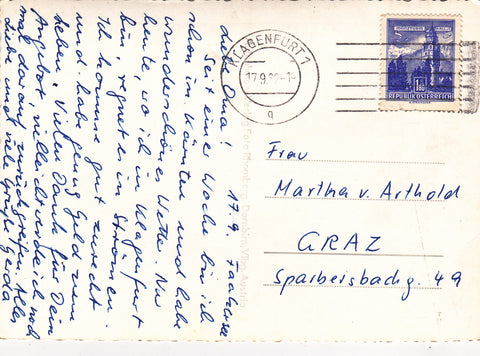 17.9. Faakersee
Liebe Oma!
Seit einer Woche bin ich
schon in Kärnten und habe
wunderschönes Wetter. Nur
heute, wo ich in Klagenfurt
bin, regnet es in Strömen.
Ich komme gut zurecht
und habe genug Geld zum
Leben. Vielen Dank für Dein
Angebot, vielleicht werde ich noch
mal darauf zurückgreifen. Alles
Liebe und viele Grüße Gerda
KLAGENFURT 1
17.9.
a
REPUBLIK ÖSTERREICH
Frau
Martha v. Arthold
GRAZ
Sparbersbachg. 49